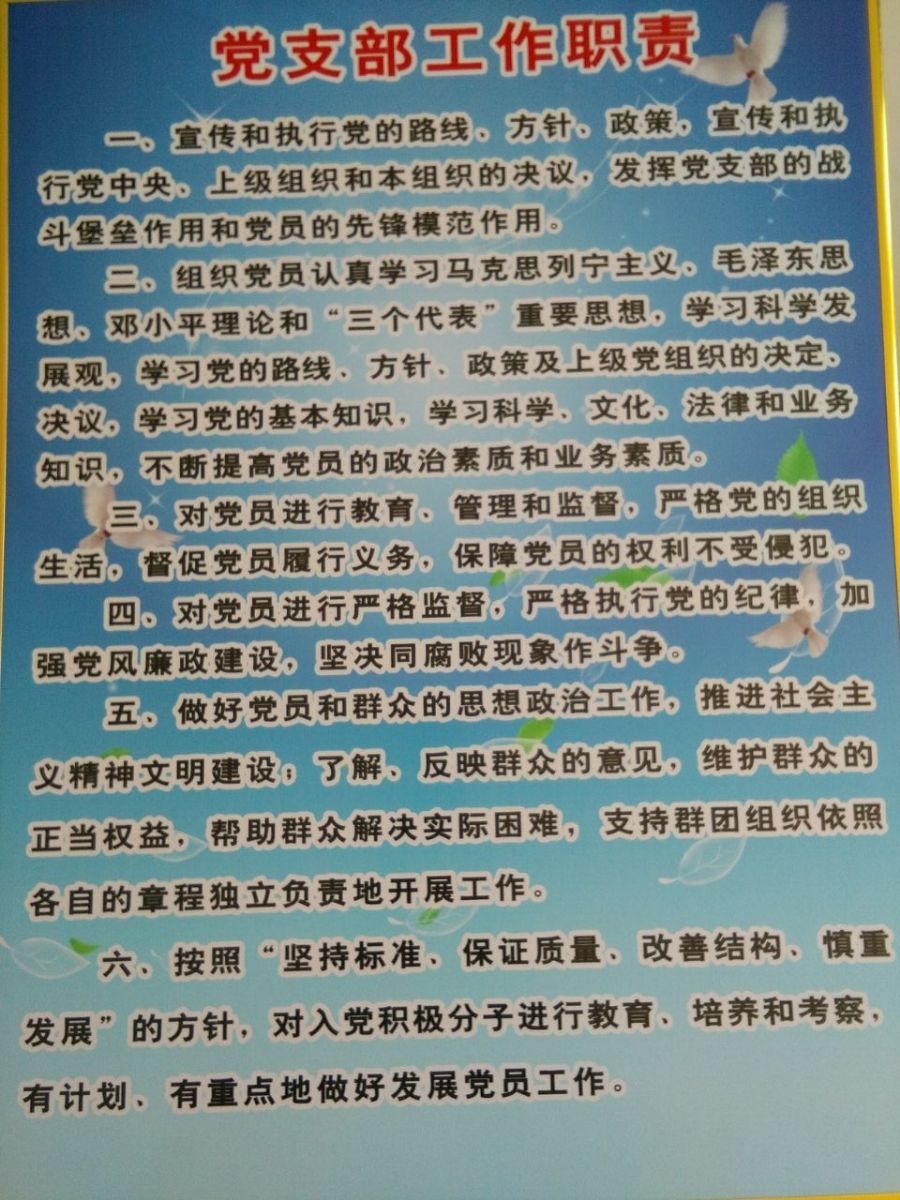 党支部工作职责
一、宣传和执行党的路线、方针、政策，宣传和执
行党中央、上级组织和本组织的决议，发挥党支部的战
斗堡垒作用和党员的先锋模范作用。
二、组织党员认真学习马克思列宁主义、毛泽东思
想、邓小平理论和“三个代表”重要思想，学习科学发
展观，学习党的路线、方针、政策及上级党组织的决定、
决议，学习党的基本知识，学习科学、文化、法律和业务
知识，不断提高党员的政治素质和业务素质。
三、对党员进行教育、管理和监督，严格党的组织
生活，督促党员履行义务，保障党员的权利不受侵犯。
四、对党员进行严格监督，严格执行党的纪律，加
强党风廉政建设，坚决同腐败现象作斗争。
五、做好党员和群众的思想政治工作，推进社会主
义精神文明建设；了解、反映群众的意见，维护群众的
正当权益，帮助群众解决实际困难，支持群团组织依照
各自的章程独立负责地开展工作。
六、按照“坚持标准、保证质量、改善结构、慎重
发展”的方针，对入党积极分子进行教育、培养和考察，
有计划、有重点地做好发展党员工作。